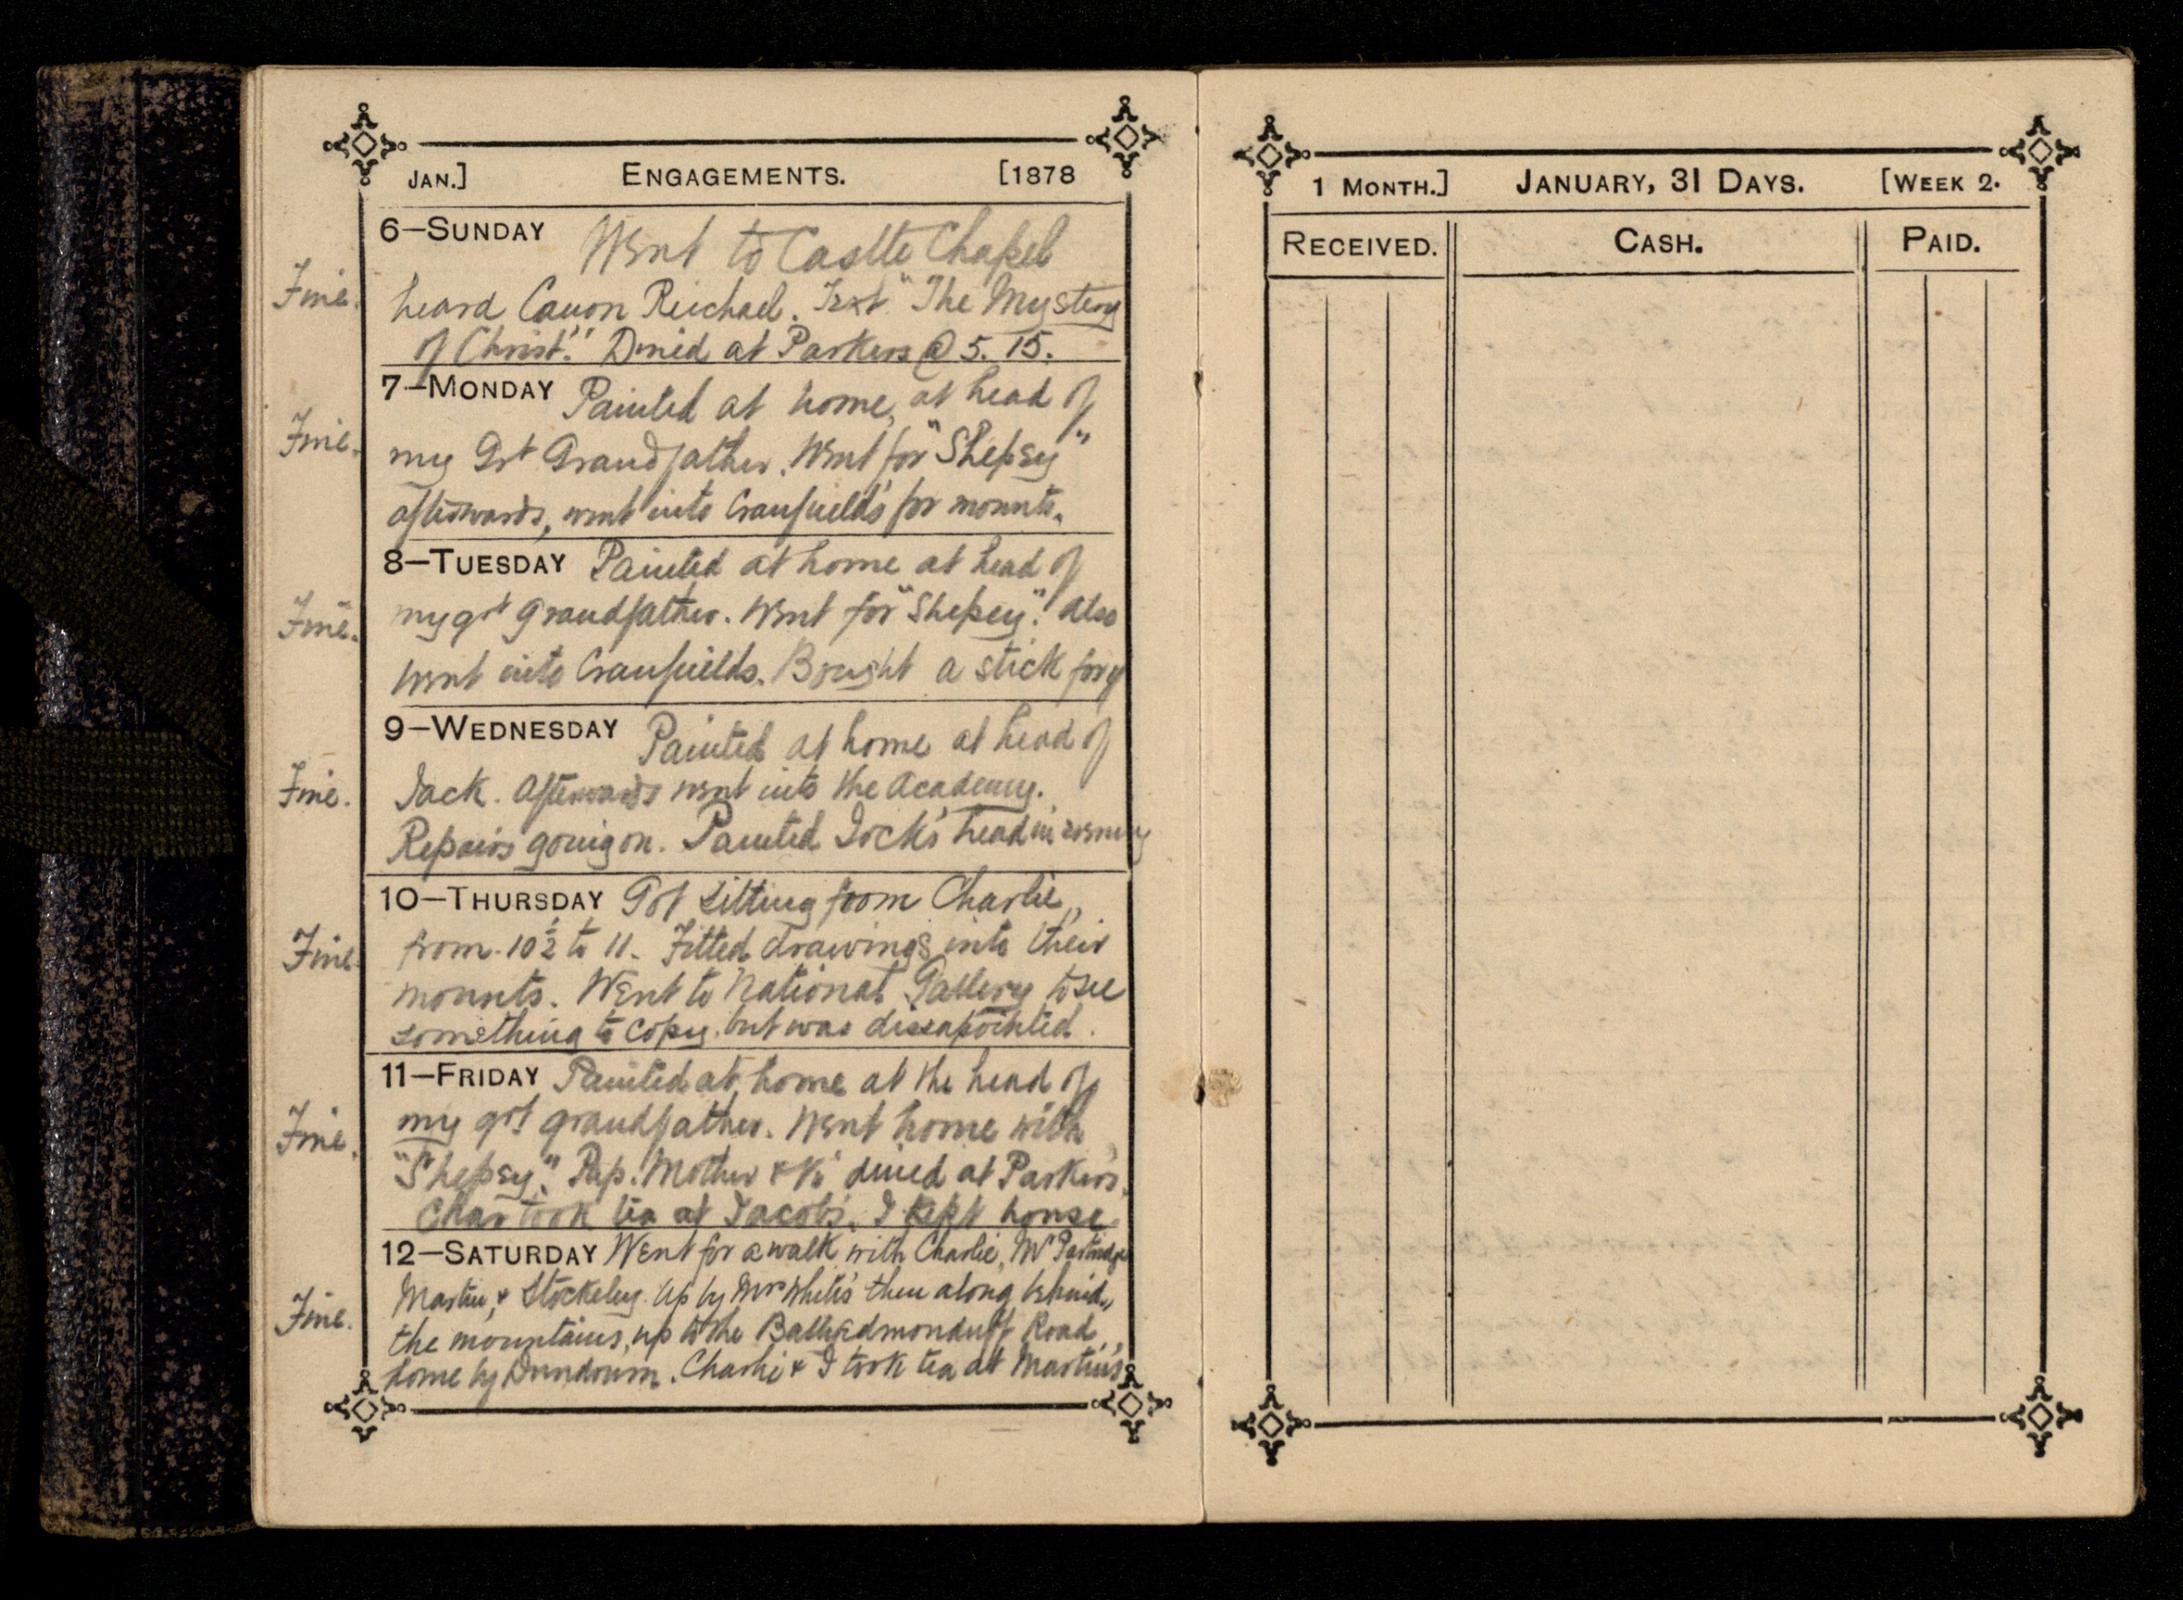 JAN.] ENGAGEMENTS. [1878
6—SUNDAY Went to Castle Chapel
Fine. heard Canon Reichael. Text "The Mystery
of Christ." Dined at Parkers @ 5. 15.
7—MONDAY Painted at home, at head of
Fine. my Grt Grandfather. Went for "Shepsey"
afterwards, went into Cranfield's for mounts.
8—TUESDAY Painted at home at head of
Fine. my grt grandfather. Went for "Shepsey". Also
went into Cranfields. Bought a stick for
9—WEDNESDAY Painted at home at head of
Fine. Jack. Afterwards went into the Academy.
Repairs going on. Painted Jock's head in evening
10—THURSDAY Got sitting from Charlie,
Fine. from 10½ to 11. Fitted drawings into their
mounts. Went to National Gallery to see
something to copy but was dissapointed.
11—FRIDAY Painted at home at the head of
Fine. my grt grandfather. Went home with
"Shepsey." Pap. Mother & Vi dined at Parkers.
Char took tea at Jacob's. I kept house.
12—SATURDAY Went for a walk with Charlie, Mr Partridge
Fine. Martin, & Stockeley. Up by Mrs White's then along behind
the mountains, up to the Ballyedmonduff Road,
home by Dundrum. Charlie & I took tea at Martin's
1 MONTH.] JANUARY, 31 DAYS. [WEEK 2.
RECEIVED. CASH. PAID.